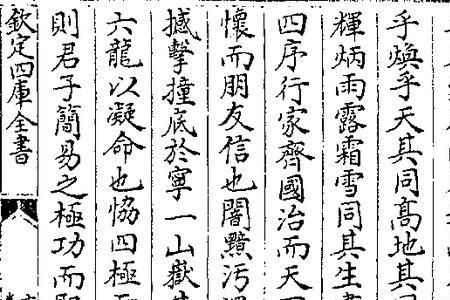 乎煥乎天其同髙地其同
輝炳雨露霜雪同其生
四序行家齊國治而天
懷而朋友信也闇黮汚
撼擊撞底於寧一山嶽
六龍以凝命也恊四極
則君子簡易之極功而
欽定四庫全書